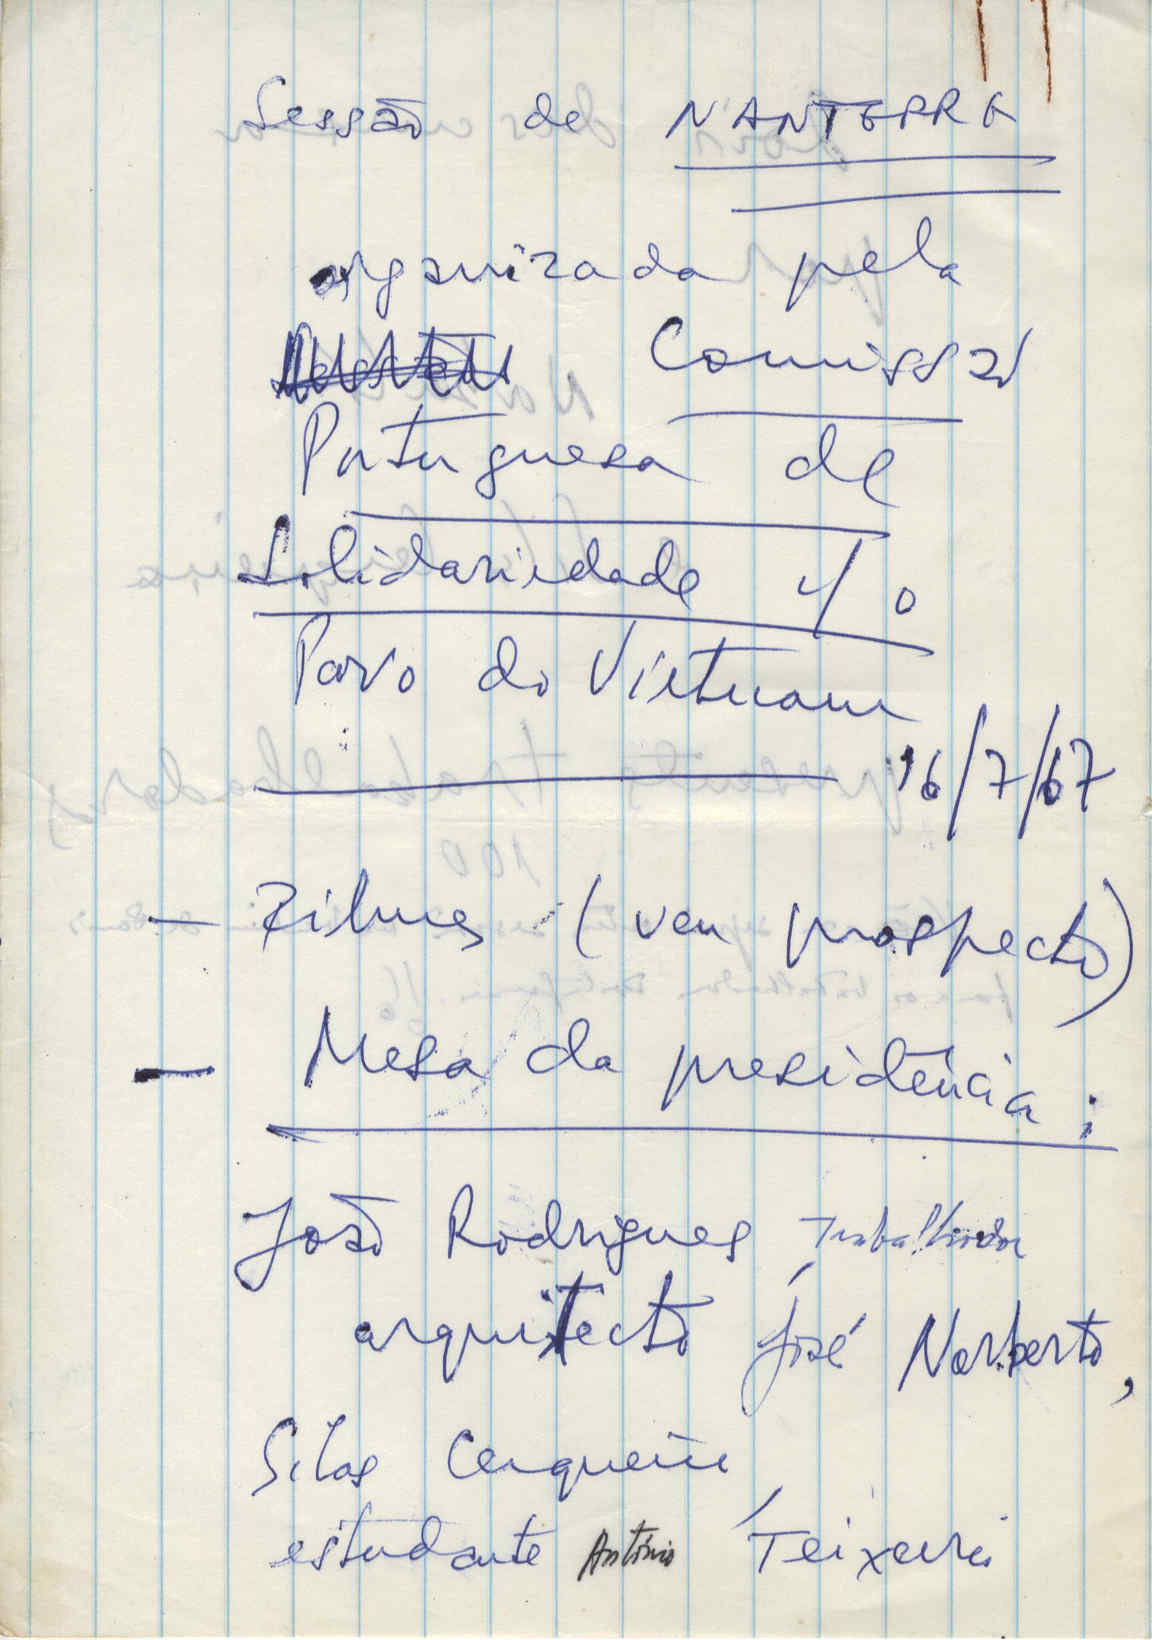 Sessão de NANTERRE
organizada pela
Comissão
Portuguesa de
Solidariedade c/ o
Povo do Vietnam
16/7/67
— Filmes (ver prospecto)
— Mesa da presidência :
João Rodrigues, trabalhador
arquitecto José Norberto,
Silas Cerqueira,
estudante António Teixeira